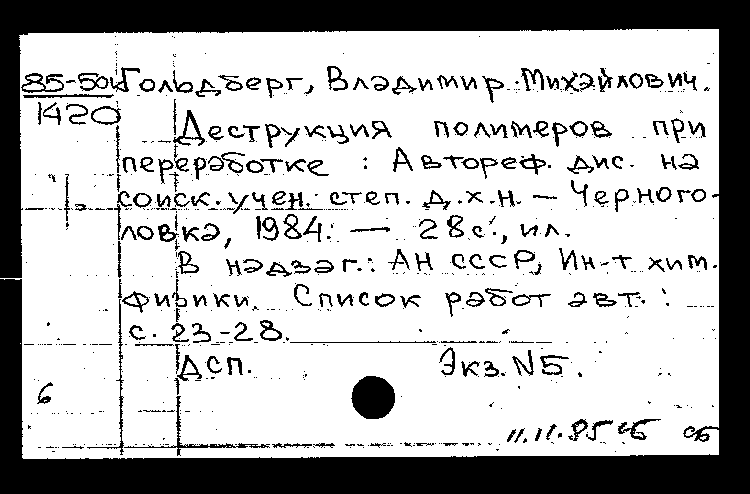 85-50к Гольдберг, Владимир Михайлович.
1420
Деструкция полимеров при
переработке : Автореф. дис. на
соиск. учен. степ. д.х.н. — Черного-
ловка, 1984. — 28 с., ил.
В надзаг.: АН СССР, Ин-т хим.
физики. Список работ авт. :
с. 23-28.
ДСП. Экз. N5.
6
11.11.85 сб сб